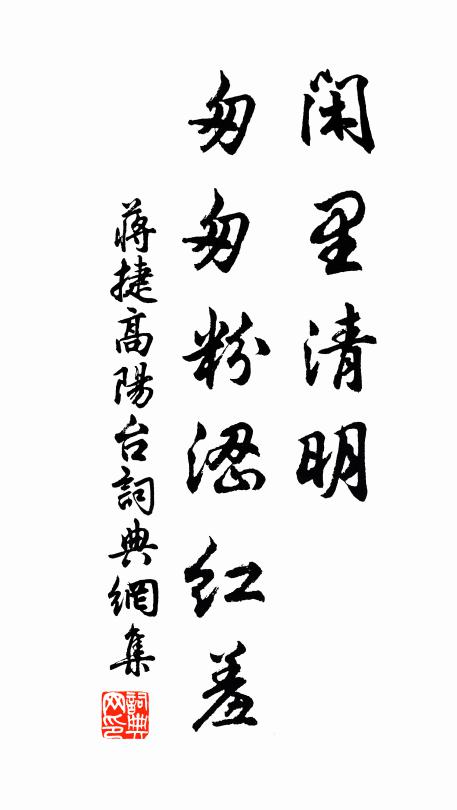 闲里清明
匆匆粉澀红羞
蒋捷高陽台詞典網集
詞典网印